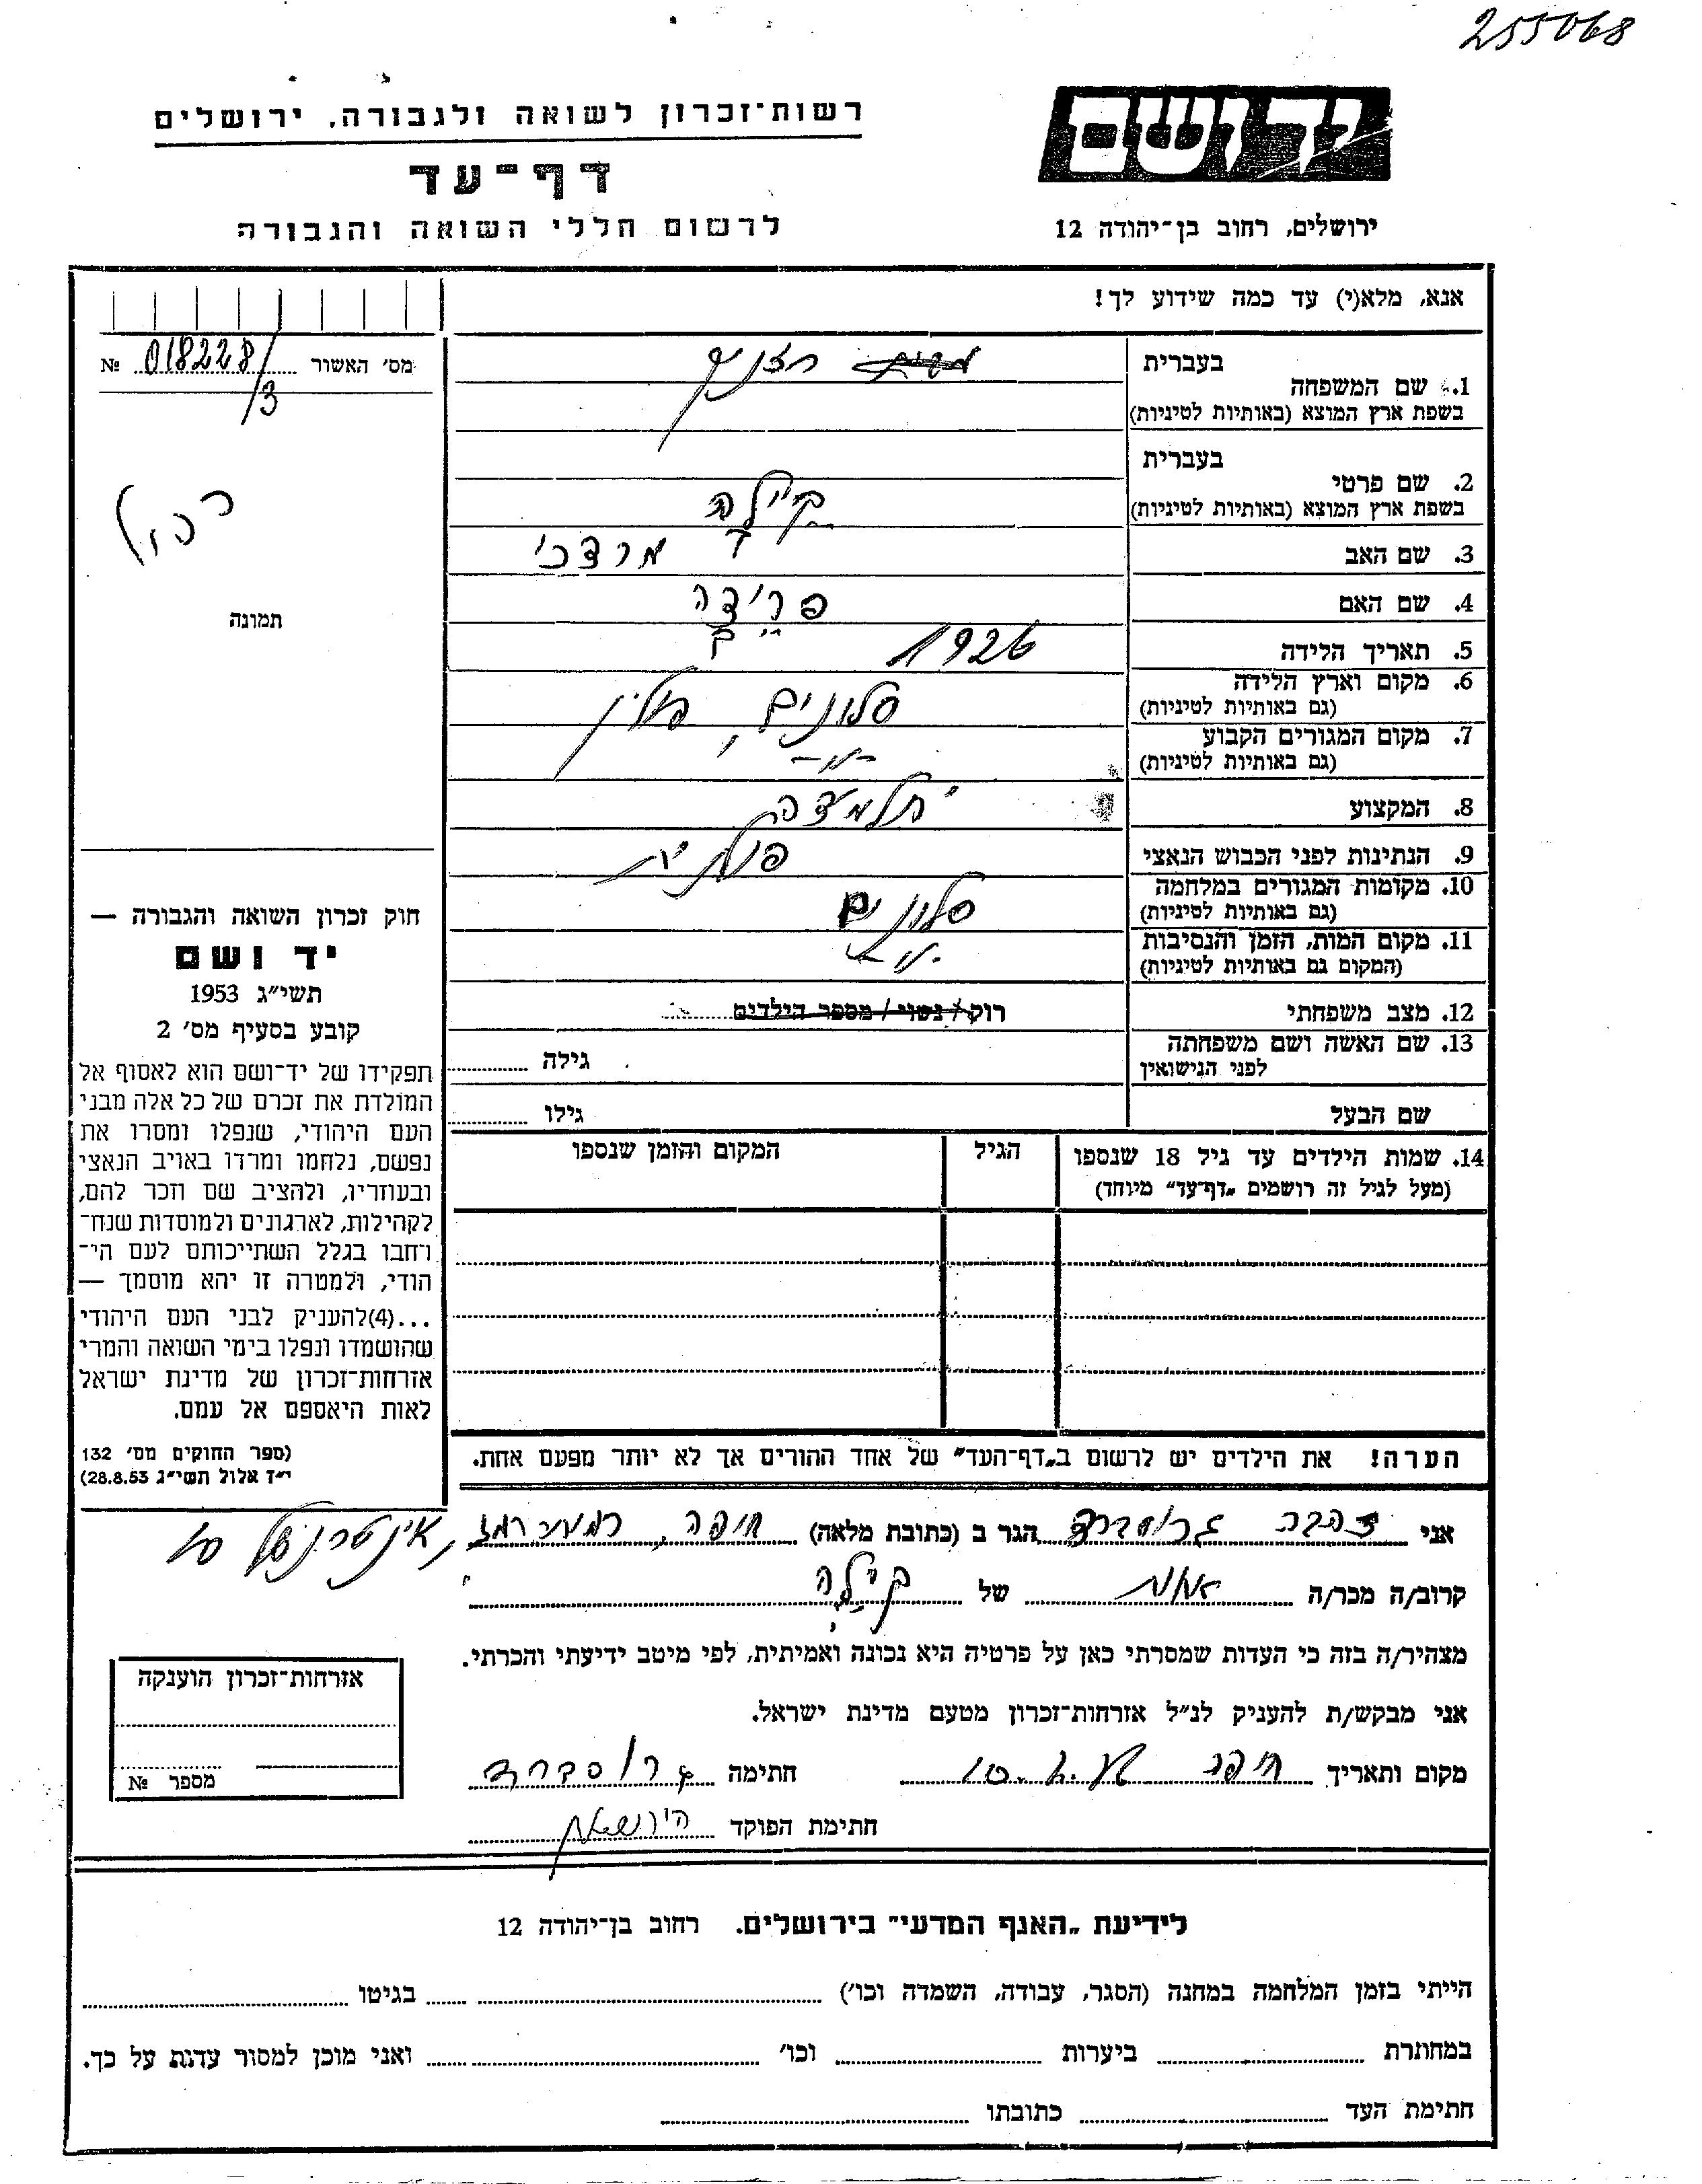 255068
יד ושם
רשות־זכרון לשואה ולגבורה, ירושלים
דף־עד
לרשום חללי השואה והגבורה
ירושלים, רחוב בן־יהודה 12
אנא, מלא(י) עד כמה שידוע לך!
מס' האשור 018228/3 №
תמונה
חוק זכרון השואה והגבורה —
יד ושם
תשי״ג 1953
קובע בסעיף מס' 2
תפקידו של יד־ושם הוא לאסוף אל
המולדת את זכרם של כל אלה מבני
העם היהודי, שנפלו ומסרו את
נפשם, נלחמו ומרדו באויב הנאצי
ובעוזריו, ולהציב שם וזכר להם,
לקהילות, לארגונים ולמוסדות שנח־
רחבו בגלל השתייכותם לעם הי־
הודי, ולמטרה זו יהא מוסמך —
...(4)להעניק לבני העם היהודי
שהושמדו ונפלו בימי השואה והמרי
אזרחות־זכרון של מדינת ישראל
לאות היאספם אל עמם.
(ספר החוקים מס' 132
י״ד אלול תשי״ג 28.8.53)
בעברית
1. שם המשפחה
בשפת ארץ המוצא (באותיות לטיניות)
בעברית
2. שם פרטי קיילה
בשפת ארץ המוצא (באותיות לטיניות)
3. שם האב מרדכי
4. שם האם פרידה
5. תאריך הלידה 1926
6. מקום וארץ הלידה סלונים, פולין
(גם באותיות לטיניות)
7. מקום המגורים הקבוע -"-
(גם באותיות לטיניות)
8. המקצוע תלמידה
9. הנתינות לפני הכבוש הנאצי פולנית
10. מקומות המגורים במלחמה סלונים
(גם באותיות לטיניות)
11. מקום המות, הזמן והנסיבות -"-
(המקום גם באותיות לטיניות)
12. מצב משפחתי רוק / נשוי / מספר הילדים
13. שם האשה ושם משפחתה גילה
לפני הנישואין
שם הבעל גילו
14. שמות הילדים עד גיל 18 שנספו הגיל המקום והזמן שנספו
(מעל לגיל זה רושמים „דף־עד״ מיוחד)
הערה! את הילדים יש לרשום ב„דף־העד״ של אחד ההורים אך לא יותר מפעם אחת.
אני זהבה הגר ב (כתובת מלאה) חיפה,
קרוב/ה מכר/ה אחות של קיילה
מצהיר/ה בזה כי העדות שמסרתי כאן על פרטיה היא נכונה ואמיתית, לפי מיטב ידיעתי והכרתי.
אני מבקש/ת להעניק לנ״ל אזרחות־זכרון מטעם מדינת ישראל.
מקום ותאריך חיפה חתימה
חתימת הפוקד
אזרחות־זכרון הוענקה
מספר №
לידיעת „האגף המדעי״ בירושלים. רחוב בן־יהודה 12
הייתי בזמן המלחמה במחנה (הסגר, עבודה, השמדה וכו') בגיטו
במחתרת ביערות וכו' ואני מוכן למסור עדות על כך.
חתימת העד כתובתו